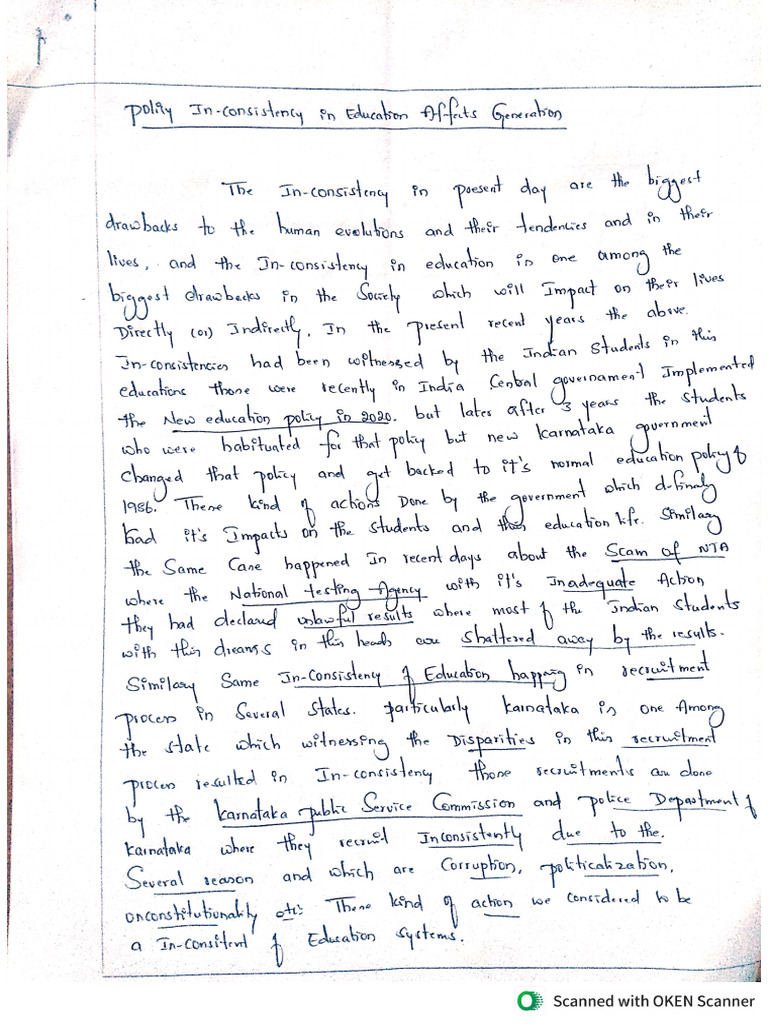 Policy In-consistency in Education Affects Generation
The In-consistency in present day are the biggest
drawbacks to the human evolutions and their tendencies and in their
lives, and the In-consistency in education is one among the
biggest drawbacks in the Society which will Impact on their lives
Directly (or) Indirectly, In the present recent years the above.
In-consistencies had been witnessed by the Indian Students in this
educations those were recently in India Central governament Implemented
the New education policy in 2020. but later after 3 years the students
who were habituated for that policy but new Karnataka government
changed that policy and get backed to it's normal education policy of
1986. These kind of actions Done by the government which definaly
had it's Impacts on the students and their education life. Similary
the Same Case happened In recent days about the Scam of NTA
where the National testing Agency with it's Inadequate Action
they had declared unlawful results where most of the Indian Students
with this dreams in this heads are shattered away by the results.
Similary Same In-Consistency of Education happing in recruitment
process in Several States. particularly Karnataka is one Among
the state which witnessing the Disparities in this recruitment
process resulted in In-consistency those recruitments are done
by the Karnataka public Service Commission and police Department of
Karnataka where they recruit Inconsistently due to the.
Several reason and which are Corruption, politicalization,
unconstitutionality etc: These kind of action we considered to be
a In-consitent of Education systems.
Scanned with OKEN Scanner